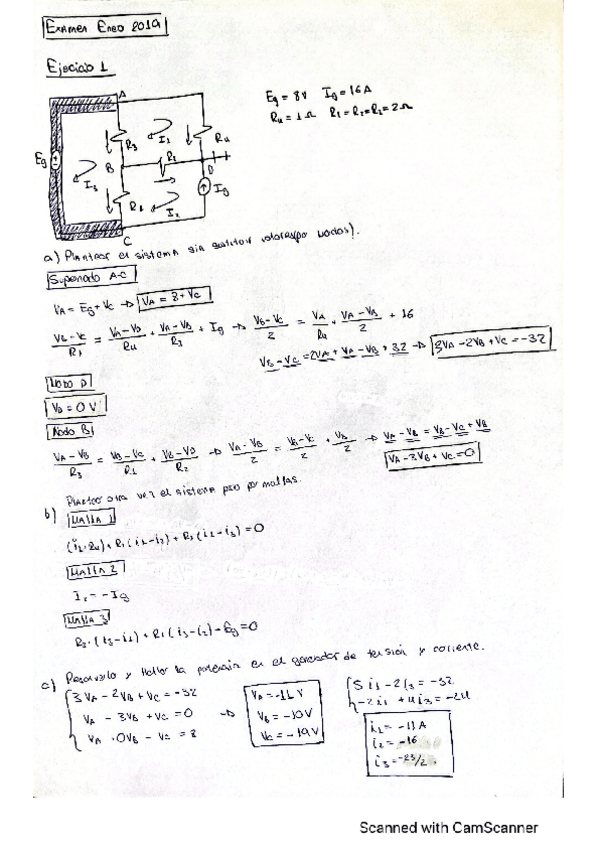 EXAMEN ENERO 2019
Ejercicio 1
Eg = 8V Ig = 16A
R4 = 1Ω R1 = R2 = R3 = 2Ω
A
R3
I1
R4
Eg
B
R2
D
I3
R1
I2
Ig
C
a) Plantear el sistema sin
Supernodo A-C
VA = Eg + VC → VA = 8 + VC
(VB - VC)/R1 = (VA - VD)/R4 + (VA - VB)/R3 + Ig → (VB - VC)/2 = VA/R4 + (VA - VB)/2 + 16
VB - VC = 2VA + VA - VB + 32 → 3VA - 2VB + VC = -32
Nodo D
VD = 0 V
Nodo B
(VA - VB)/R3 = (VB - VC)/R1 + (VB - VD)/R2 → (VA - VB)/2 = (VB - VC)/2 + VB/2 → VA - VB = VB - VC + VB
VA - 3VB + VC = 0
b) otra vez el sistema por mallas.
Malla 1
Malla 2
I2 = -Ig
Malla 3
c) Resuelvelo y Hallar la potencia en el generador de tensión y corriente.
3VA - 2VB + VC = -32
VA - 3VB + VC = 0
VA + 0VB - VC = 8
VB = -10V
VC = -19V
5i1 - 2i3 = -32
-2i1 + 4i3 = -24
i1 = -11A
i2 = -16
i3 = -23/2
Scanned with CamScanner